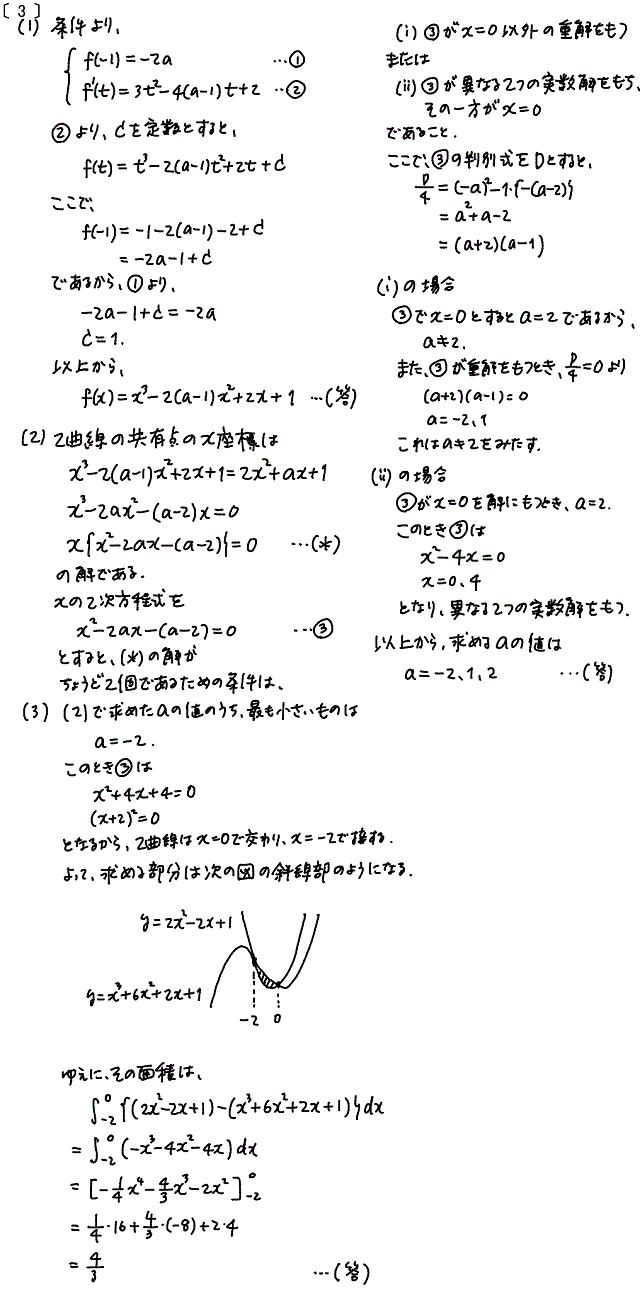 [3]
(1) 条件より、
f(-1)=-2a …①
f'(t)=3t²-4(a-1)t+2 …②
②より、Cを定数とすると、
f(t)=t³-2(a-1)t²+2t+C
ここで、
f(-1)=-1-2(a-1)-2+C
=-2a-1+C
であるから、①より、
-2a-1+C=-2a
C=1.
以上から、
f(x)=x³-2(a-1)x²+2x+1 …(答)
(2) 2曲線の共有点のx座標は
x³-2(a-1)x²+2x+1=2x²+ax+1
x³-2ax²-(a-2)x=0
x{x²-2ax-(a-2)}=0 …(*)
の解である.
xの2次方程式を
x²-2ax-(a-2)=0 …③
とすると、(*)の解が
ちょうど2個であるための条件は、
(i) ③がx=0以外の重解をもつ
または
(ii) ③が異なる2つの実数解をもち、
その一方がx=0
であること.
ここで、③の判別式をDとすると、
D/4=(-a)²-1・{-(a-2)}
=a²+a-2
=(a+2)(a-1)
(i)の場合
③でx=0とするとa=2であるから、
a≠2.
また、③が重解をもつとき、D/4=0より
(a+2)(a-1)=0
a=-2,1
これはa≠2をみたす.
(ii)の場合
③がx=0を解にもつとき、a=2.
このとき③は
x²-4x=0
x=0、4
となり、異なる2つの実数解をもつ.
以上から、求めるaの値は
a=-2、1、2 …(答)
(3) (2)で求めたaの値のうち、最も小さいものは
a=-2.
このとき③は
x²+4x+4=0
(x+2)²=0
となるから、2曲線はx=0で交わり、x=-2で接する.
よって、求める部分は次の図の斜線部のようになる.
y=2x²-2x+1
y=x³+6x²+2x+1
-2 0
ゆえに、その面積は、
∫₋₂⁰{(2x²-2x+1)-(x³+6x²+2x+1)}dx
=∫₋₂⁰(-x³-4x²-4x)dx
=[-1/4x⁴-4/3x³-2x²]₋₂⁰
=1/4・16+4/3・(-8)+2・4
=4/3 …(答)